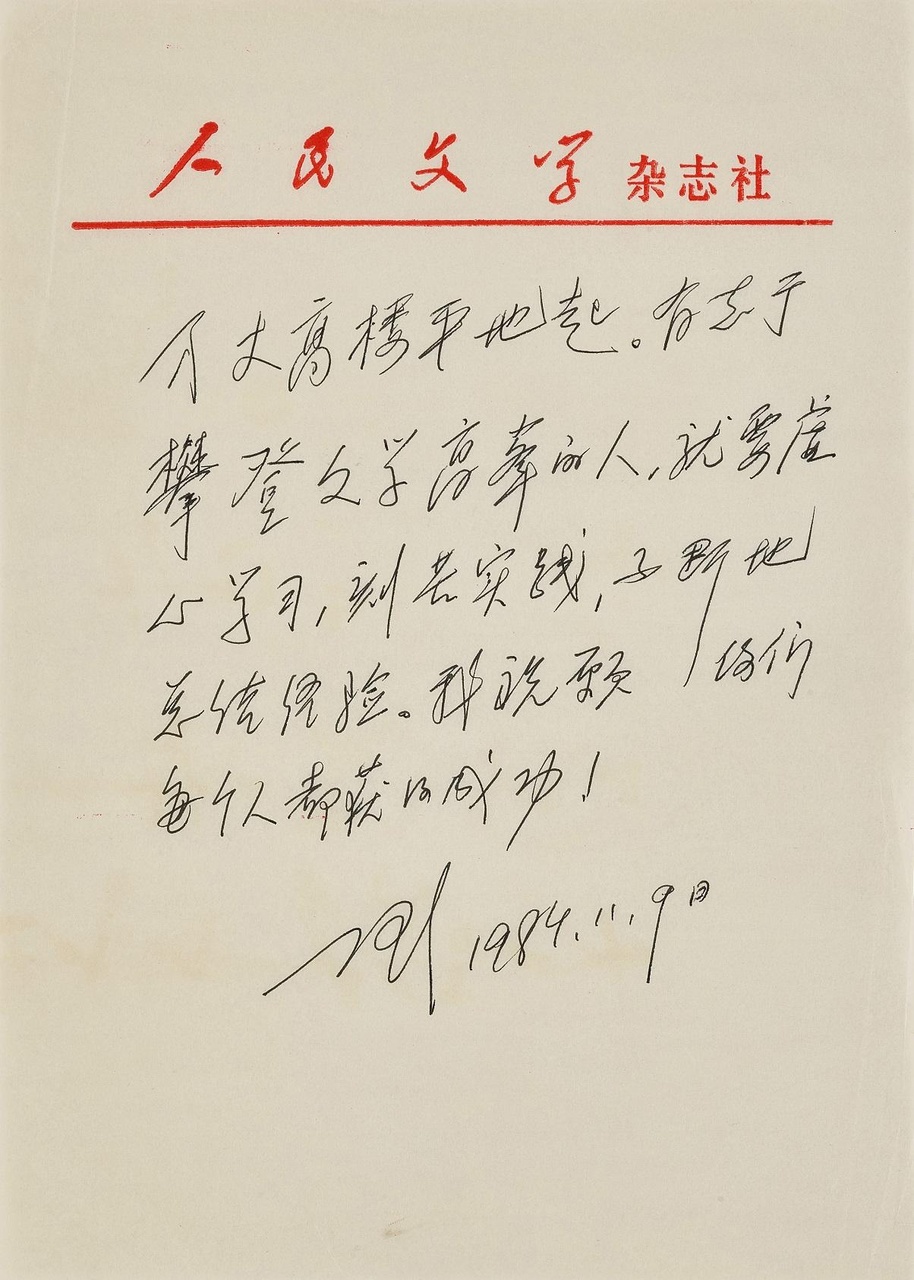 人民文学杂志社
万丈高楼平地起。有志于
攀登文学高峯的人，就要虚
心学习，刻苦实践，不断地
总结经验。我祝愿你们
每个人都获得成功！
1984.11.9日